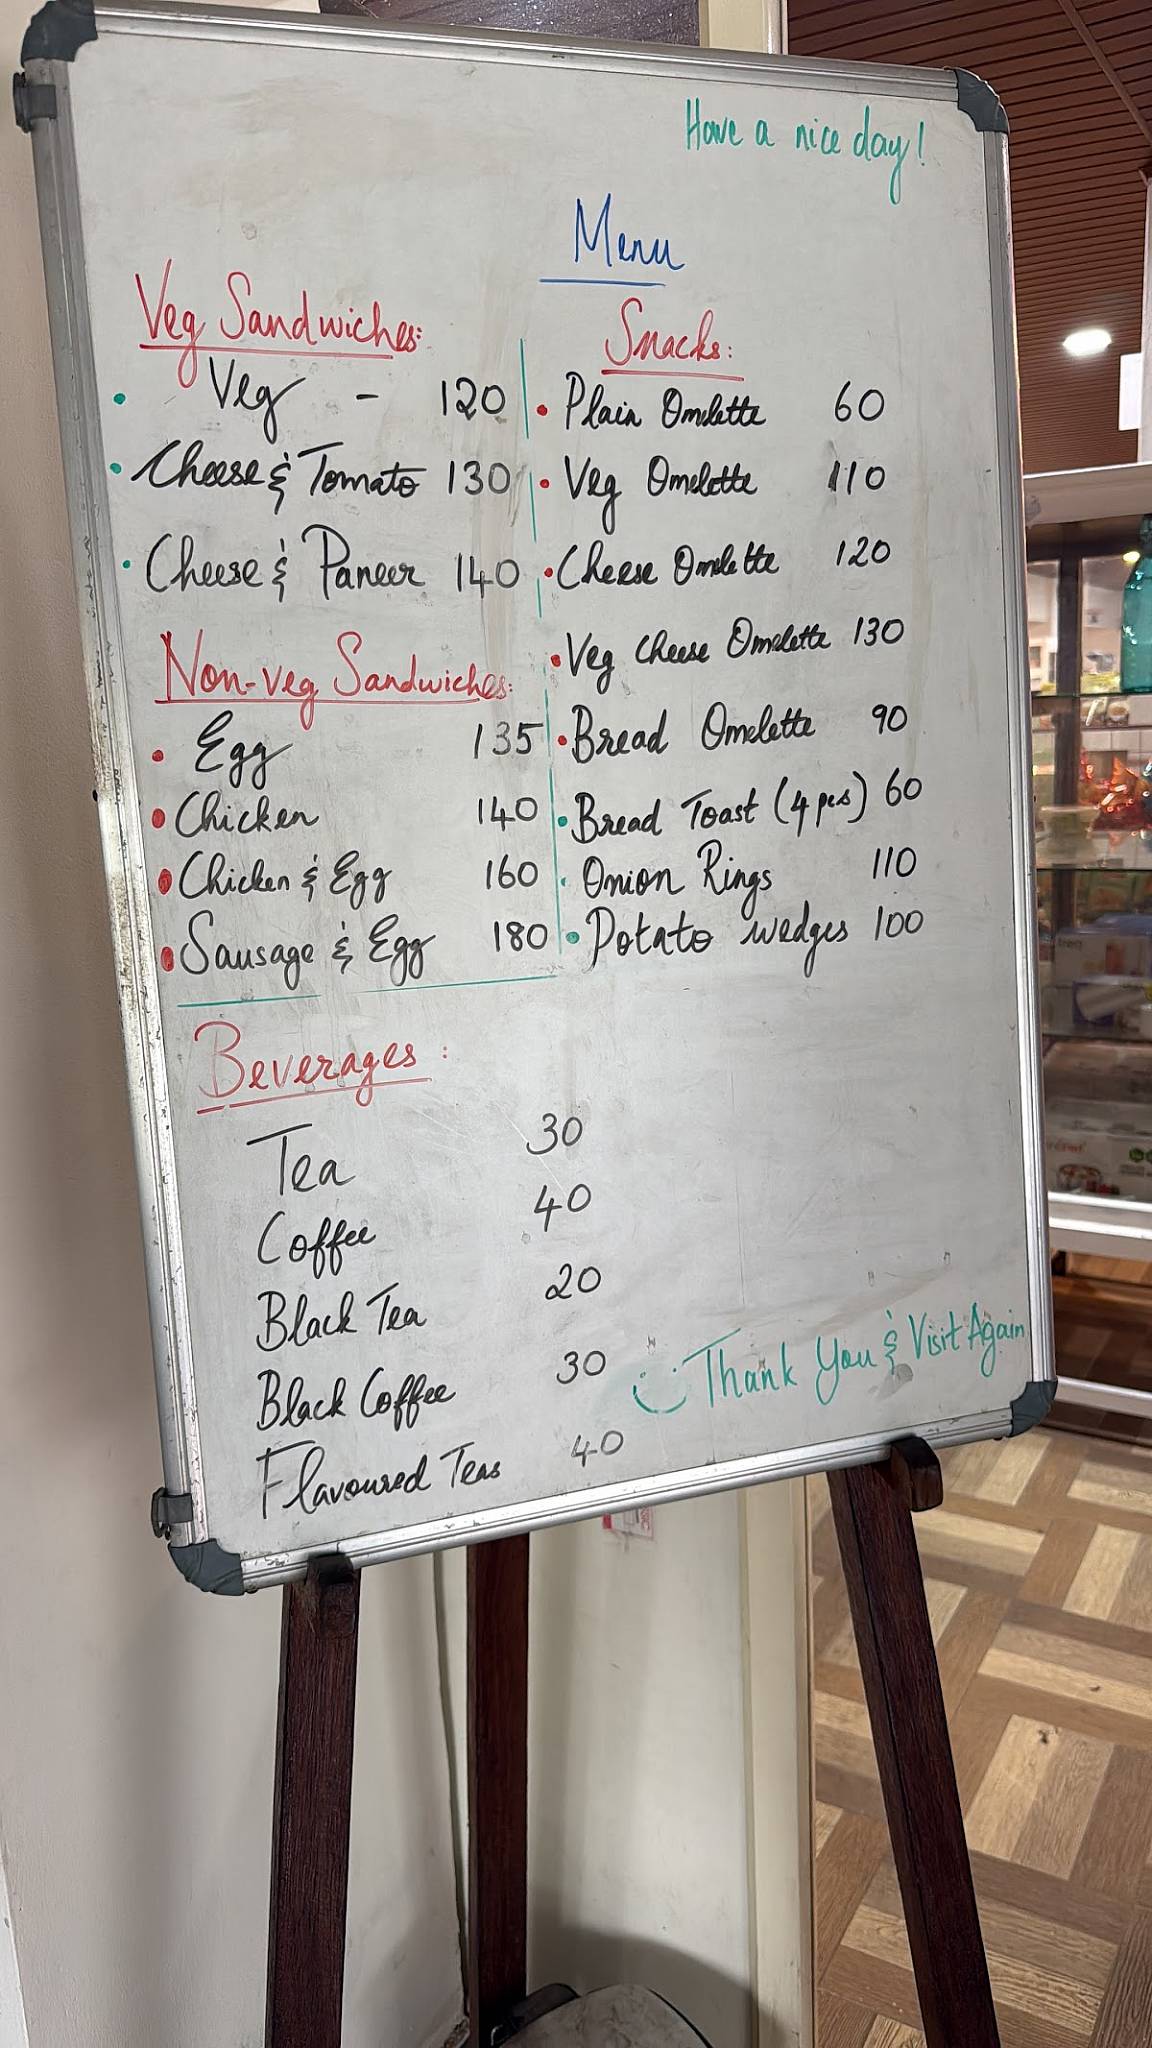 Have a nice day!
Menu
Veg Sandwiches:
Veg - 120
Cheese & Tomato 130
Cheese & Paneer 140
Non-veg Sandwiches:
Egg 135
Chicken 140
Chicken & Egg 160
Sausage & Egg 180
Snacks:
Plain Omelette 60
Veg Omelette 110
Cheese Omelette 120
Veg Cheese Omelette 130
Bread Omelette 90
Bread Toast (4 pcs) 60
Onion Rings 110
Potato wedges 100
Beverages:
Tea 30
Coffee 40
Black Tea 20
Black Coffee 30
Flavoured Teas 40
Thank You & Visit Again